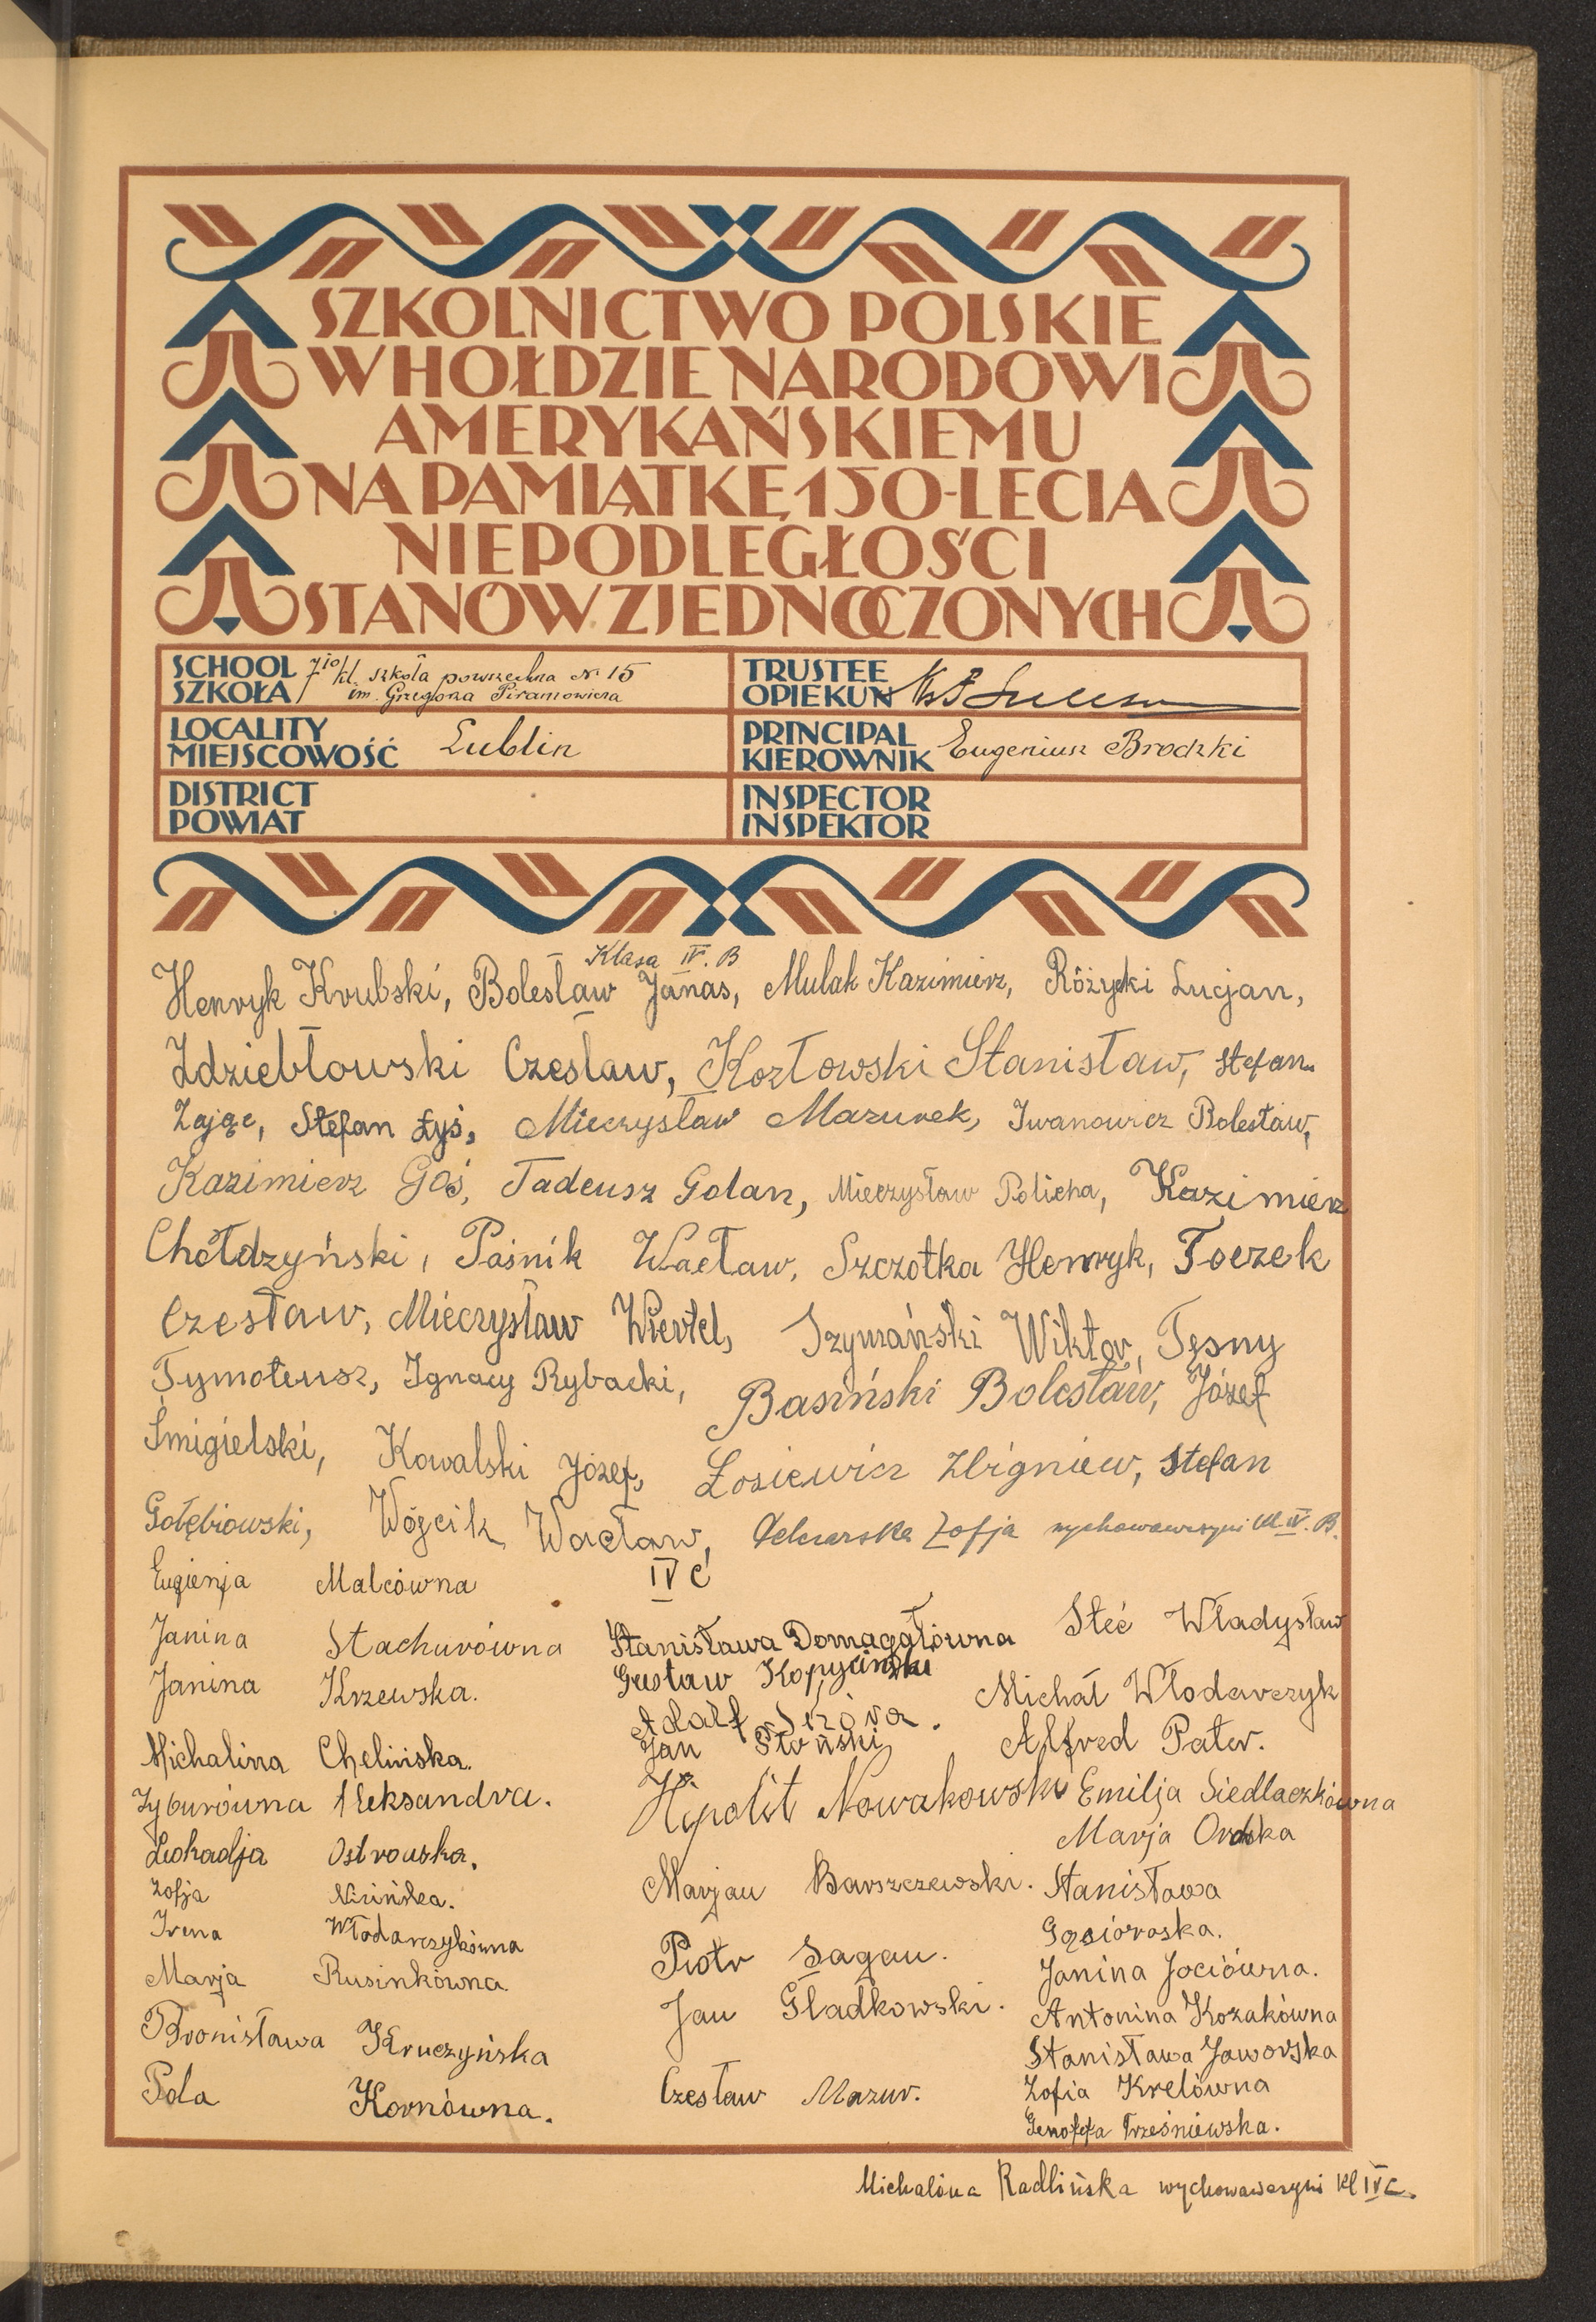 SZKOLNICTWO POLSKIE
W HOŁDZIE NARODOWI
AMERYKAŃSKIEMU
NA PAMIĄTKĘ 150-LECIA
NIEPODLEGŁOŚCI
STANÓW ZJEDNOCZONYCH
SCHOOL
SZKOŁA
7io kl. szkoła powszechna № 15
im. Grzegorza Piramowicza
TRUSTEE
OPIEKUN
LOCALITY
MIEJSCOWOŚĆ
Lublin
PRINCIPAL
KIEROWNIK
Eugeniusz Brodzki
DISTRICT
POWIAT
INSPECTOR
INSPEKTOR
Klasa IV. B
Henryk Krubski, Bolesław Janas, Mulak Kazimierz, Różycki Lucjan,
Zdziebłowski Czesław, Kozłowski Stanisław, Stefan
Zając, Stefan Łyś, Mieczysław Mazurek, Iwanowicz Bolesław,
Kazimierz Goś, Tadeusz Golan, Mieczysław Policha, Kazimierz
Chołdzyński, Paśnik Wacław, Szczotka Henryk, Toczek
Czesław, Mieczysław Wiertel, Szymański Wiktor, Tęsny
Tymoteusz, Ignacy Rybacki, Basiński Bolesław, Józef
Śmigielski, Kowalski Józef, Łosiewicz Zbigniew, Stefan
Gołębiowski, Wójcik Wacław, Zofja wychowawczyni kl IV. B.
IV C
Eugienja Malcówna
Janina Stachurówna
Janina Krzewska.
Michalina Chelińska.
Zyburówna Aleksandra.
Leokadja Ostrowska.
Zofja
Irena Włodarczykówna
Marja Rusinkówna
Bronisława Kruczyńska
Pola Kornówna.
Stanisława Domagałówna
Gustaw Kopyciński
Adolf Sikora.
Jan Słoński
Hipolit Nowakowski
Marjan Barszczewski.
Piotr Sagan.
Jan Gładkowski.
Czesław Mazur.
Steć Władysław
Michał Włodarczyk
Alfred Pater.
Emilja Siedlaczkówna
Marja Ordska
Stanisława
Gąsiorowska.
Janina Jociówna.
Antonina Kozakówna
Stanisława Jaworska
Zofia Krelówna
Genoffa Trześniewska.
Michalina Radlińska wychowawczyni kl IV C.